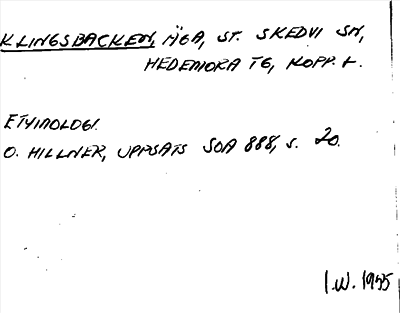 KLINGSBACKEN, ÄGA, ST. SKEDVI SN,
HEDEMORA TG, KOPP. L.
ETYMOLOGI.
O. HILLNER, UPPSATS SOA 888, s. 20.
I.W. 1955